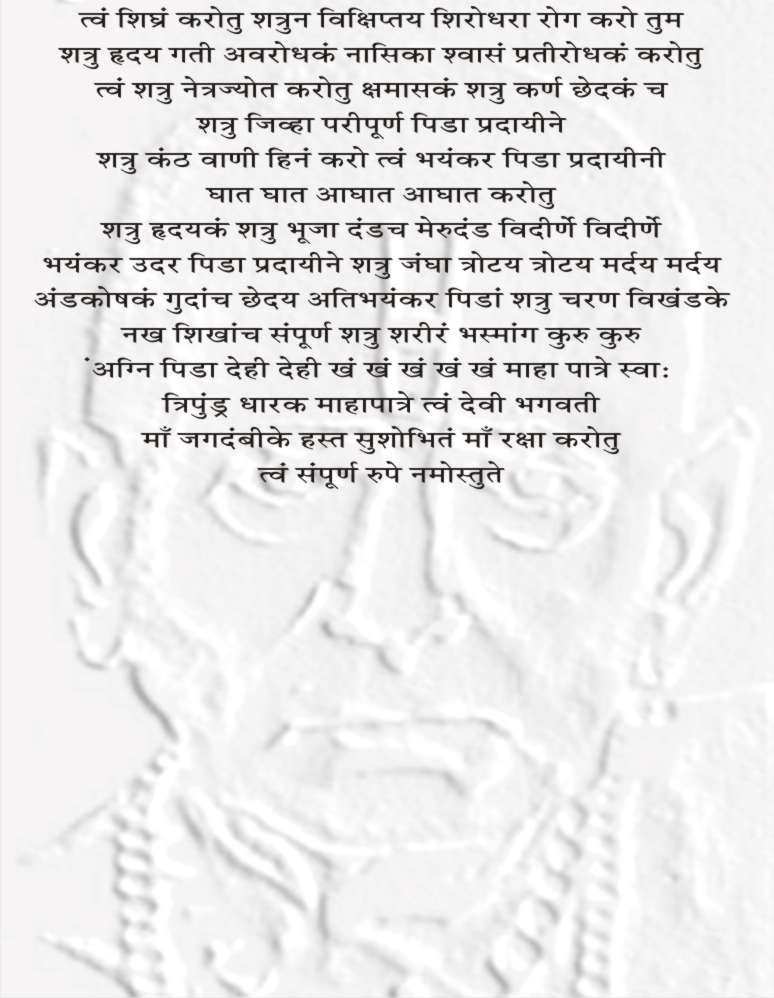 त्वं शिघ्रं करोतु शत्रुन विक्षिप्तय शिरोधरा रोग करो तुम
शत्रु हृदय गती अवरोधकं नासिका श्वासं प्रतीरोधकं करोतु
त्वं शत्रु नेत्रज्योत करोतु क्षमासकं शत्रु कर्ण छेदकं च
शत्रु जिव्हा परीपूर्ण पिडा प्रदायीने
शत्रु कंठ वाणी हिनं करो त्वं भयंकर पिडा प्रदायीनी
घात घात आघात आघात करोतु
शत्रु हृदयकं शत्रु भूजा दंडच मेरुदंड विदीर्णे विदीर्णे
भयंकर उदर पिडा प्रदायीने शत्रु जंघा त्रोटय त्रोटय मर्दय मर्दय
अंडकोषकं गुदांच छेदय अतिभयंकर पिडां शत्रु चरण विखंडके
नख शिखांच संपूर्ण शत्रु शरीरं भस्मांग कुरु कुरु
ंअग्नि पिडा देही देही खं खं खं खं खं माहा पात्रे स्वाः
त्रिपुंड्र धारक माहापात्रे त्वं देवी भगवती
माँ जगदंबीके हस्त सुशोभितं माँ रक्षा करोतु
त्वं संपूर्ण रुपे नमोस्तुते